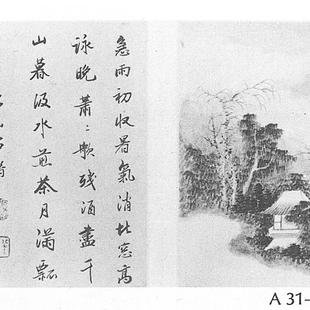 急雨初收暑氣消北窓高
詠晚蕭〻歌殘酒盡千
山暮汲水煎茶月滿瓢
A 31-